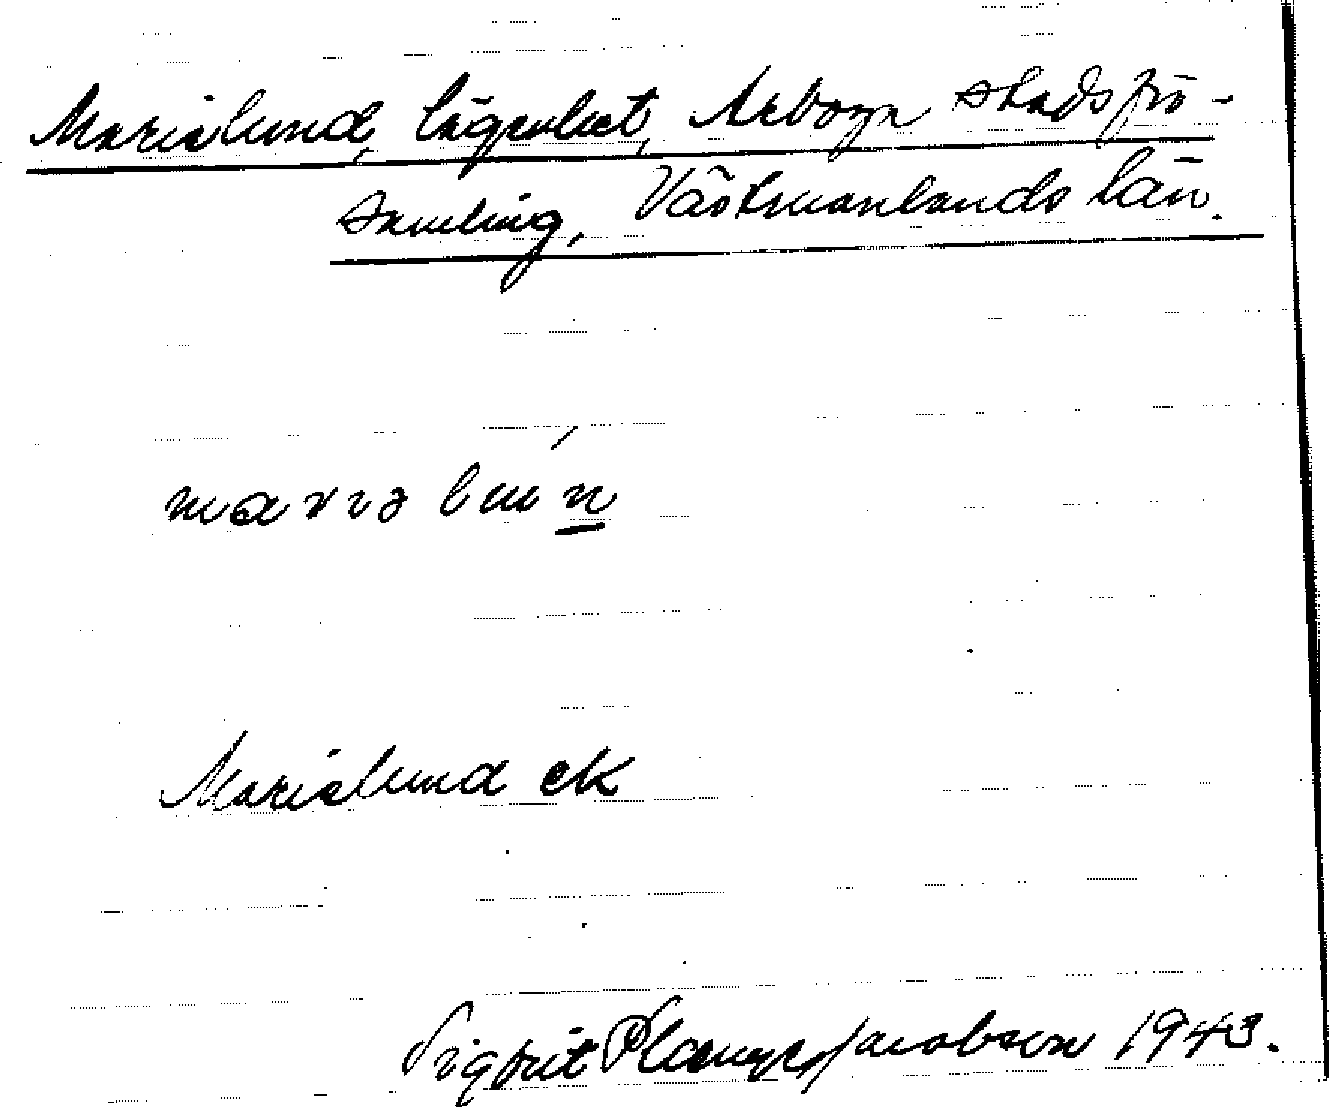 Marielund, lägenhet, Arboga stadsför-
samling, Västmanlands län.
mariəlun
Marielund ek
Sigbrit Plænge Jacobson 1943.